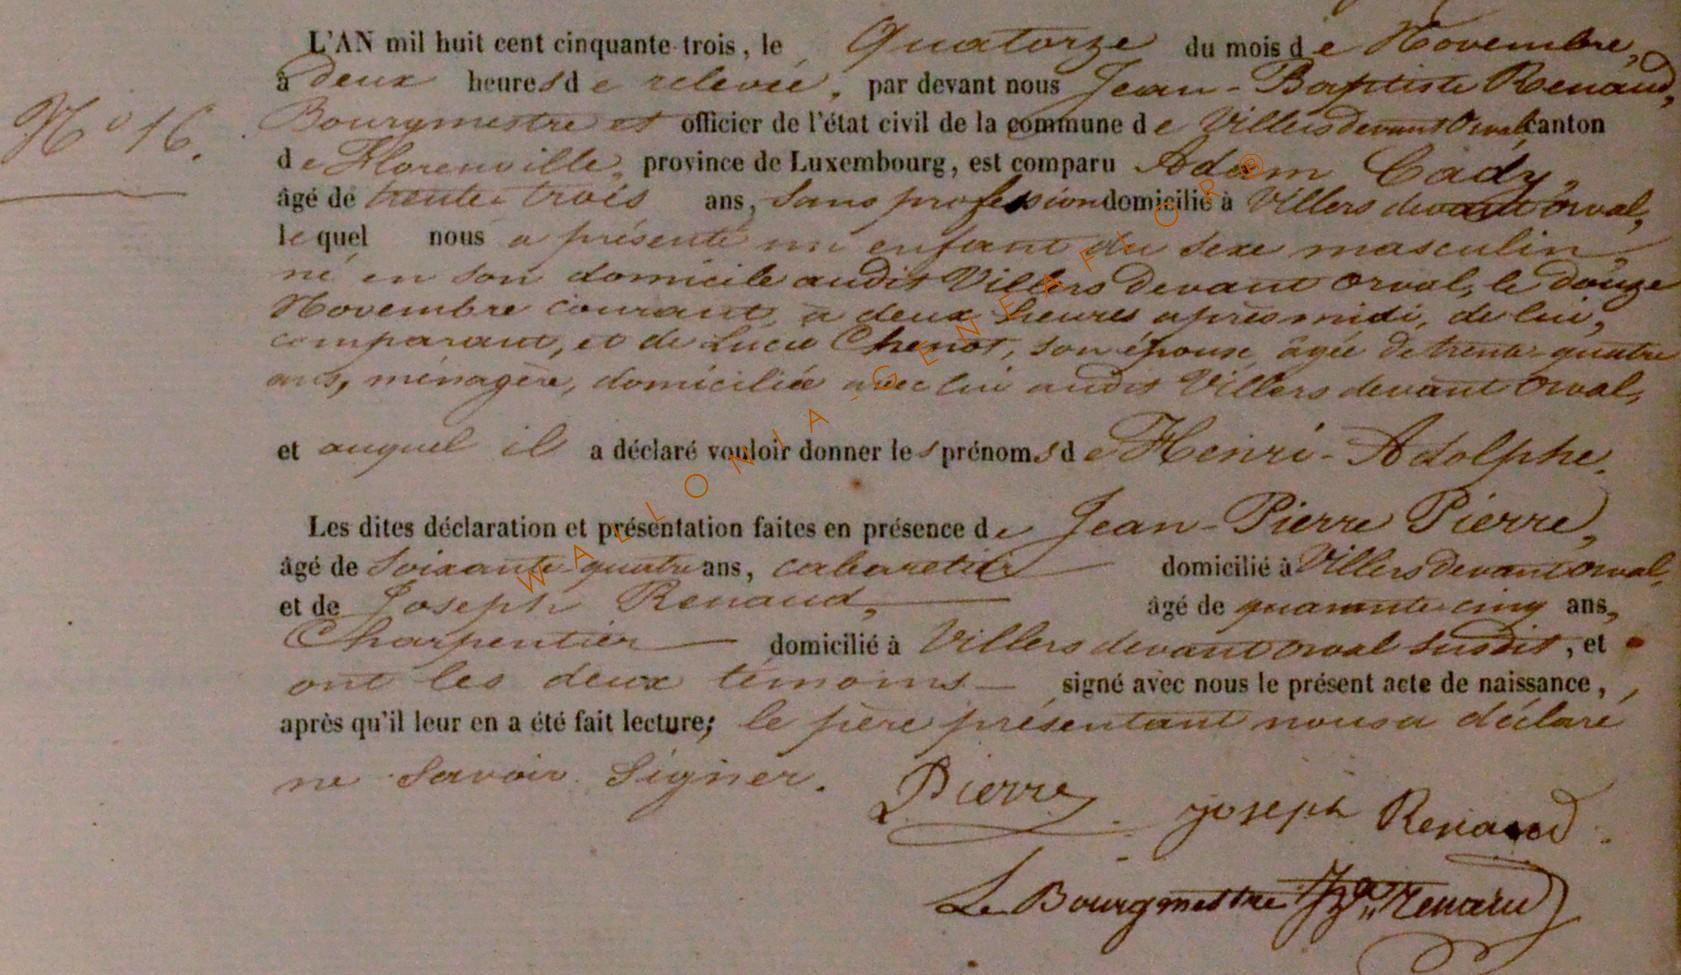 L'AN mil huit cent cinquante-trois, le Quatorze du mois de Novembre,
à deux heures de relevée, par devant nous Jean-Baptiste Renaud,
N° 16.
Bourgmestre et officier de l'état civil de la commune de Villers devant Orval, canton
de Florenville, province de Luxembourg, est comparu Adam Cady,
âgé de trente-trois ans, sans profession domicilié à Villers devant Orval,
lequel nous a présenté un enfant du sexe masculin,
né en son domicile audit Villers devant Orval, le douze
Novembre courant, à deux heures après midi, de lui,
comparant, et de Lucie Chenot, son épouse, âgée de trente-quatre
ans, ménagère, domiciliée avec lui audit Villers devant Orval,
et auquel il a déclaré vouloir donner les prénoms de Henri-Adolphe.
Les dites déclaration et présentation faites en présence de Jean-Pierre Pierre,
âgé de soixante-quatre ans, cabaretier domicilié à Villers devant Orval,
et de Joseph Renaud, âgé de quarante-cinq ans,
Charpentier domicilié à Villers devant Orval susdit, et
ont les deux témoins signé avec nous le présent acte de naissance,
après qu'il leur en a été fait lecture; le père présentant nous a déclaré
ne savoir signer.
Pierre Joseph Renaud
Le Bourgmestre Renaud
WALLONIA-GENEAFLOR®